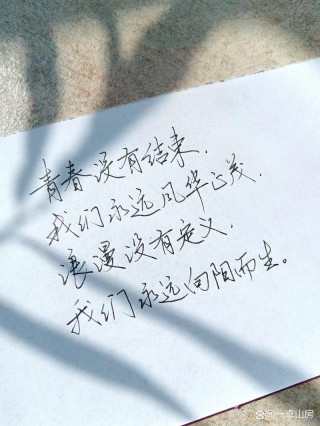 青春没有结束，
我们永远风华正茂，
浪漫没有定义，
我们永远向阳而生。
一卓山房